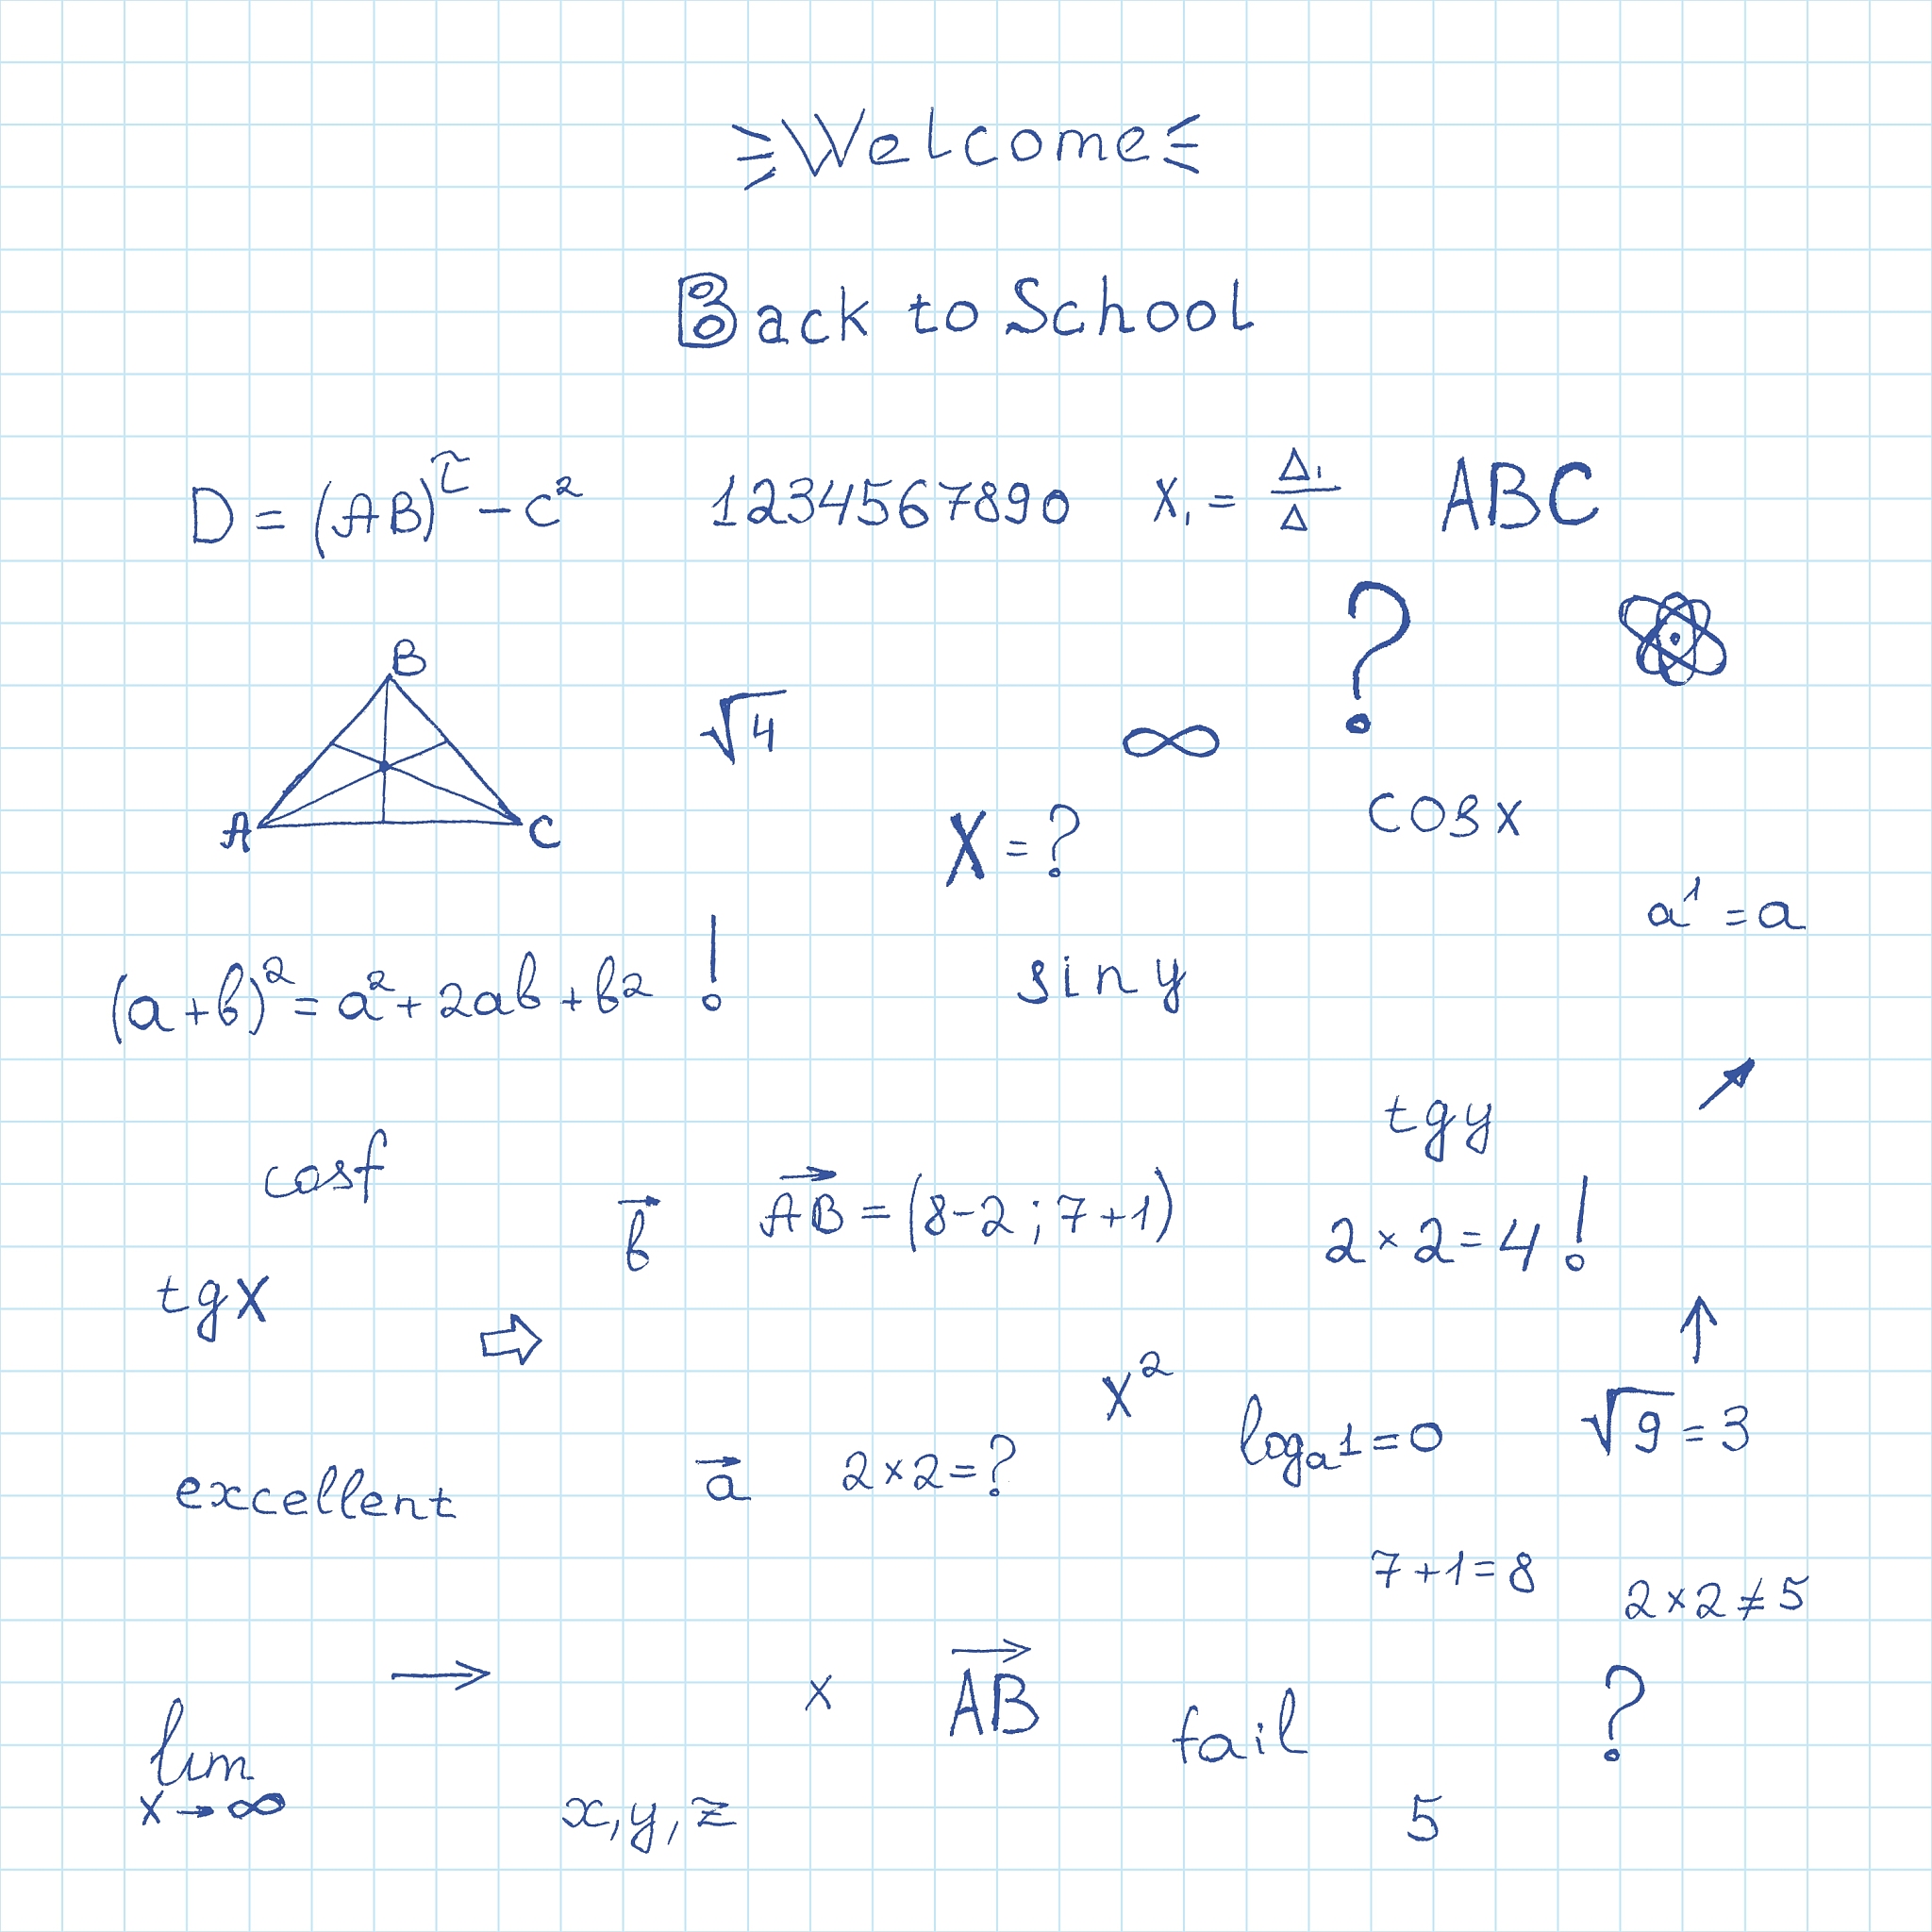 Welcome
Back to School
D = (AB)^τ - c² 1234567890 x₁ = Δ₁/Δ ABC
B
√4 ∞ ?
A C
X = ? cos x
a¹ = a
(a+b)² = a² + 2ab + b² ! sin y
tgy
cosf
b⃗ A⃗B⃗ = (8-2; 7+1) 2 × 2 = 4!
tgx
x²
logₐ1 = 0 √9 = 3
excellent a⃗ 2×2=?
7+1=8 2×2≠5
→ x A⃗B⃗ fail ?
lim
x→∞ x, y, z 5